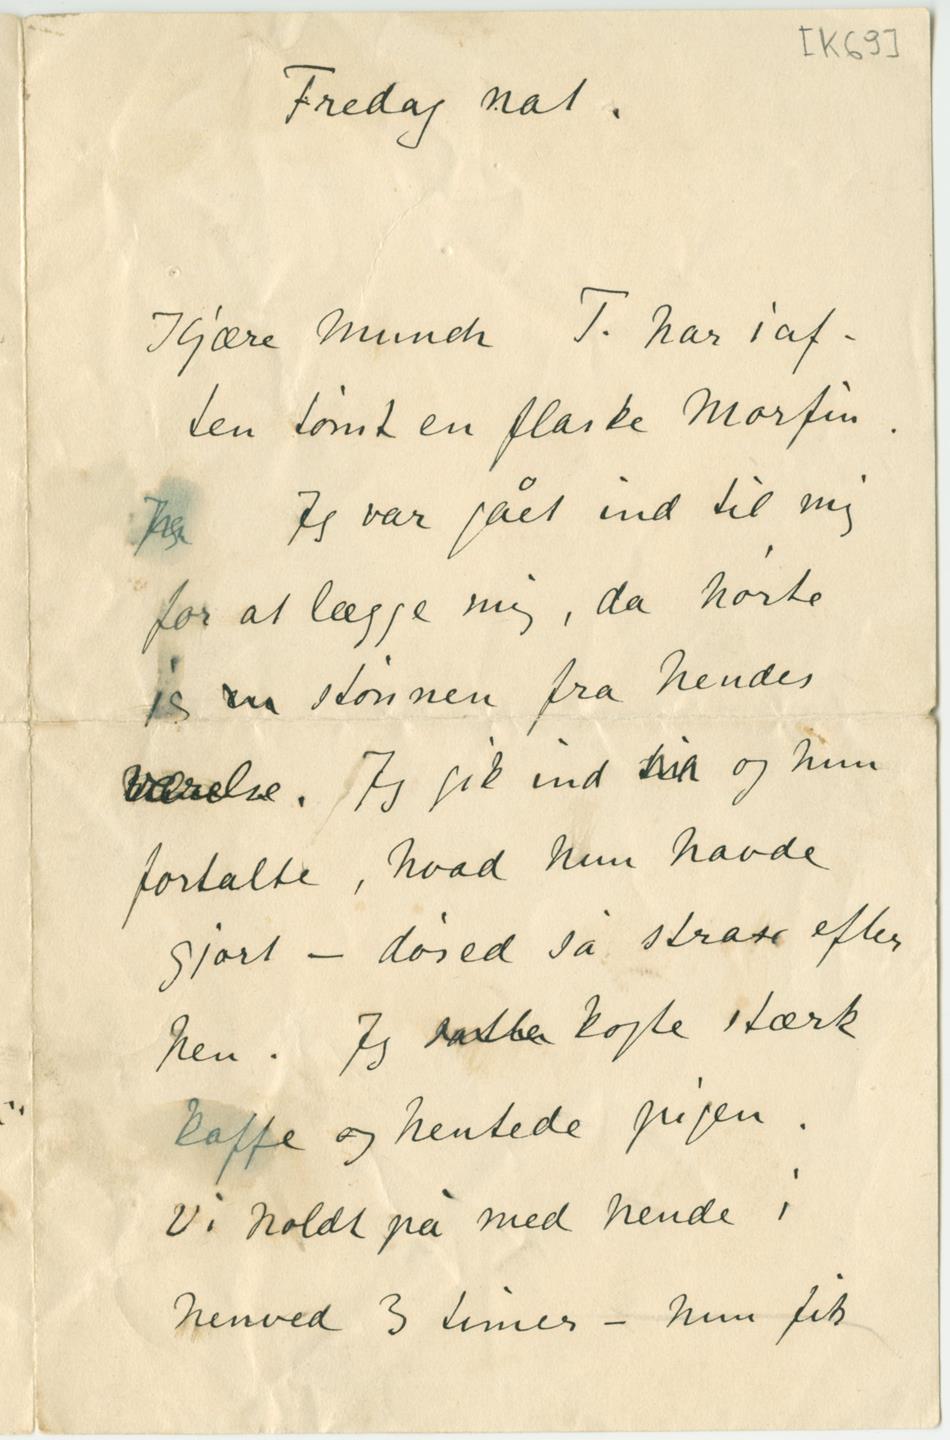 [K69]
Fredag nat.
Kjære Munch T. har iaf-
ten tømt en flaske Morfin.
Jeg Jg var gået ind til mig
for at lægge mig, da hørte
jg en stønnen fra hendes
værelse. Jg gik ind og hun
fortalte, hvad hun havde
gjort – døsed så strax efter
hen. Jg kogte stærk
kaffe og hentede pigen.
Vi holdt på med hende i
henved 3 timer – hun fik